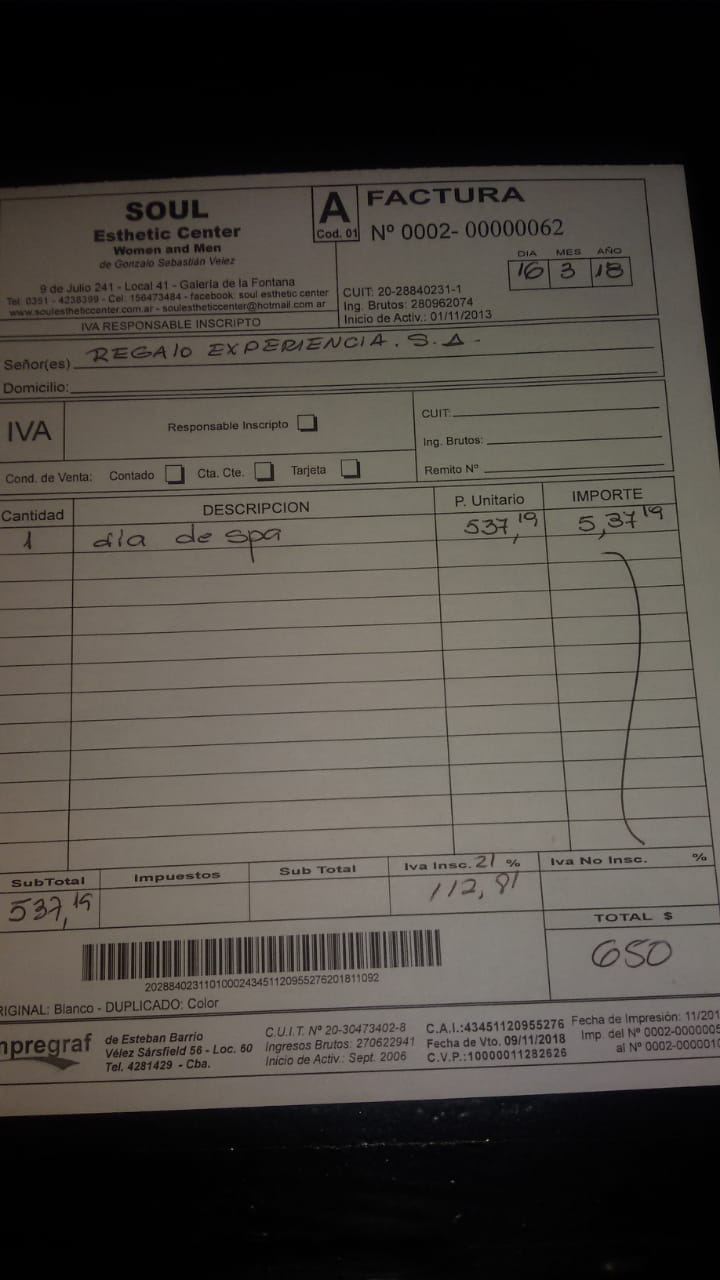 SOUL
Esthetic Center
Women and Men
de Gonzalo Sebastián Velez
9 de Julio 241 - Local 41 - Galería de la Fontana
Tel. 0351 - 4238399 - Cel: 156473484 - facebook: soul esthetic center
www.soulestheticcenter.com.ar - soulestheticcenter@hotmail.com ar
IVA RESPONSABLE INSCRIPTO
A
Cod. 01
FACTURA
Nº 0002- 00000062
DIA MES AÑO
16 3 18
CUIT: 20-28840231-1
Ing. Brutos: 280962074
Inicio de Activ.: 01/11/2013
Señor(es) REGAlO EXPERIENCIA. S.A.
Domicilio:
IVA
Responsable Inscripto
Cond. de Venta: Contado Cta. Cte. Tarjeta
CUIT:
Ing. Brutos:
Remito Nº
Cantidad DESCRIPCION P. Unitario IMPORTE
1 día de spa 537,19 5,37 19
SubTotal Impuestos Sub Total Iva Insc. 21 % Iva No Insc. %
537,19 112,81
TOTAL $
650
20288402311010002434511209552762018110​92
RIGINAL: Blanco - DUPLICADO: Color
mpregraf
de Esteban Barrio
Vélez Sársfield 56 - Loc. 60
Tel. 4281429 - Cba.
C.U.I.T. Nº 20-30473402-8
Ingresos Brutos: 270622941
Inicio de Activ.: Sept. 2006
C.A.I.:43451120955276
Fecha de Vto. 09/11/2018
C.V.P.:10000011282626
Fecha de Impresión: 11/201
Imp. del Nº 0002-0000005
al Nº 0002-0000010